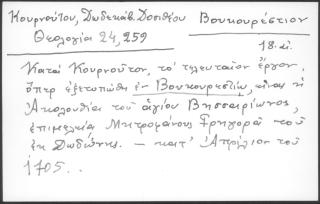 Κουρνούτου, Δωδεκάβ. Δοσιθέου Βουκουρέστιον
Θεολογία 24, 259
18. αἰ.
Κατά Κουρνοῦτον, τό τελευταῖον ἔργον,
ὅπερ ἐξετυπώθη ἐν Βουκουρεστίῳ, εἶναι ἡ
Ἀκολουθία τοῦ ἁγίου Βησσαρίωνος,
ἐπιμελείᾳ Μητροφάνους Γρηγορᾶ τοῦ
ἐκ Δωδώνης. — κατ' Ἀπρίλιον τοῦ
1705..